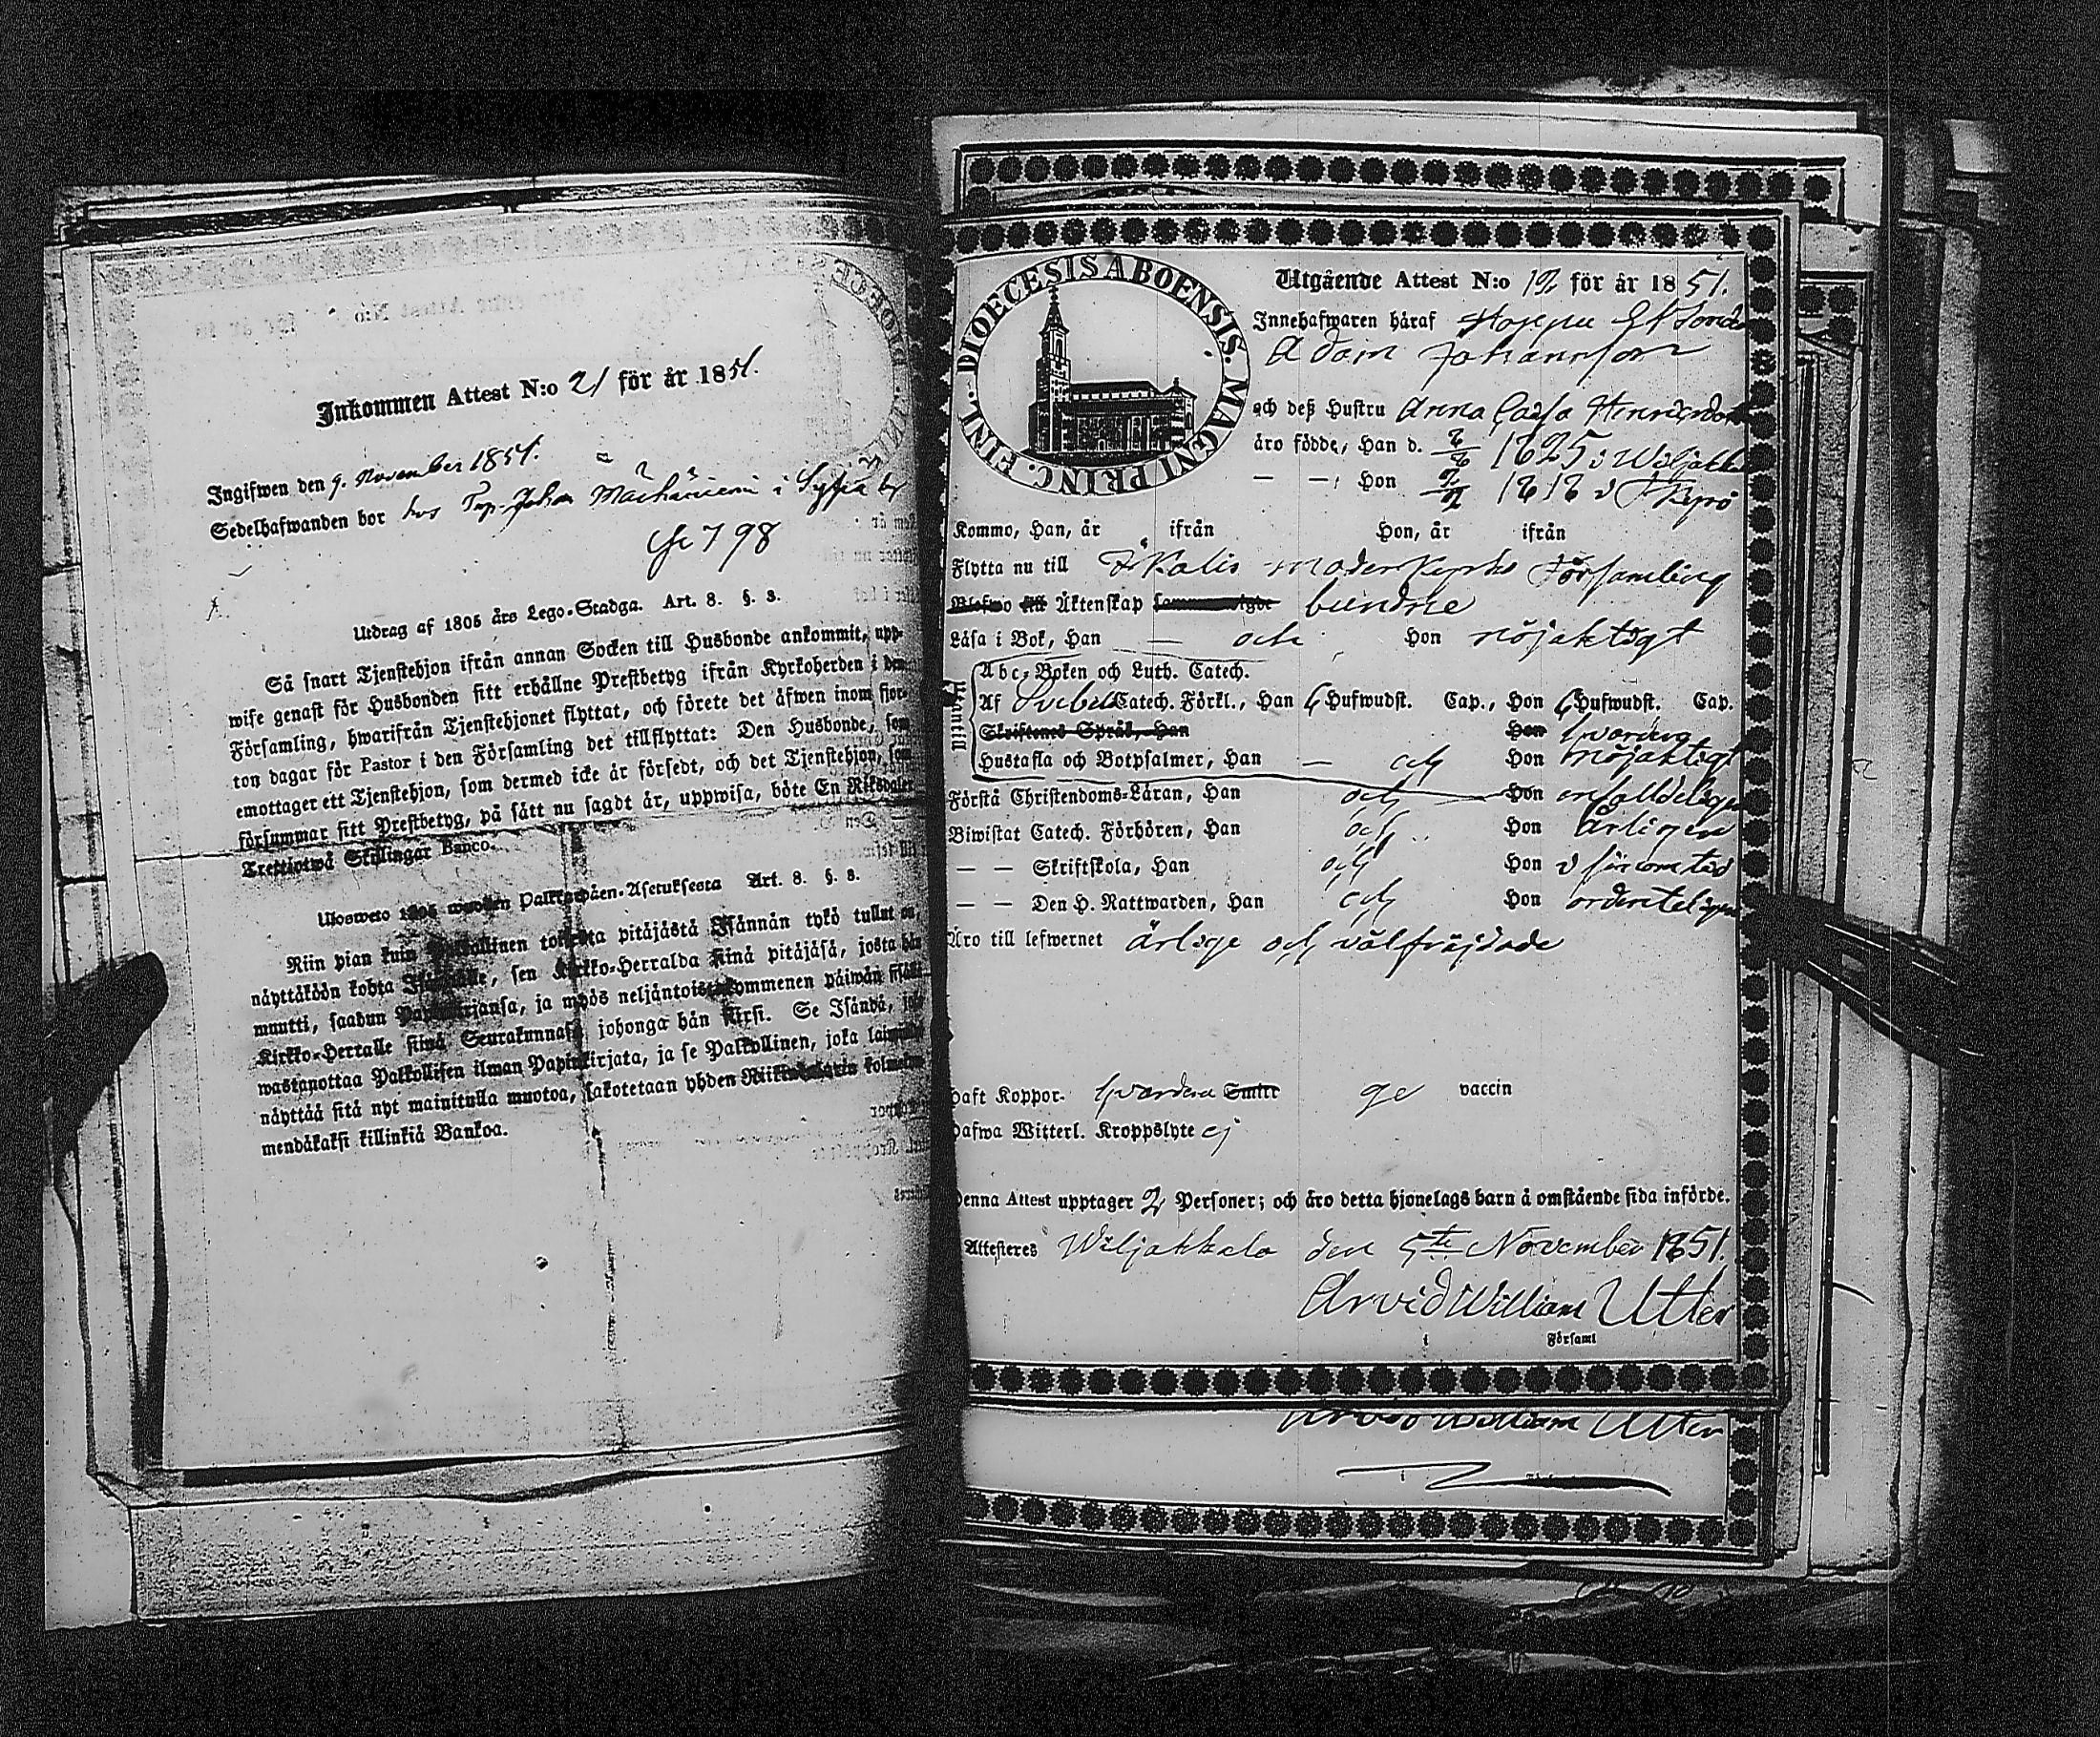 Inkommen Attest N:o 21 för år 1851.
Ingifwen den 9. November 1851.
Sedelhafwanden bor hos Johan i
798
Utdrag af 1805 års Lego-Stadga. Art. 8. §. 3.
Så snart Tjenstehjon ifrån annan Socken till Husbonde ankommit, upp-
wise genast för Husbonden sitt erhållne Prestbetyg ifrån Kyrkoherden i den
Församling, hwarifrån Tjenstehjonet flyttat, och förete det äfwen inom fjor-
ton dagar för Pastor i den Församling det tillflyttat: Den Husbonde, som
emottager ett Tjenstehjon, som dermed icke är försedt, och det Tjenstehjon, som
försummar sitt Prestbetyg, på sätt nu sagdt är, uppwisa, böte En Riksdaler
Trettiotwå Skillingar Banco.
Ulosweto 1805 wuoden Palkkawäen-Asetuksesta Art. 8. §. 3.
Niin pian kuin Palkollinen toisesta pitäjästä Isännän tykö tullut on,
näyttäköön kohta Isännälle, sen Kirkko-Herralda siinä pitäjäsä, josta hän
muutti, saadun Papinkirjansa, ja myös neljäntoistakommenen päiwän sisällä
Kirkko-Herralle siinä Seurakunnasa, johonga hän siirsi. Se Isändä, joka
wastanottaa Palkollisen ilman Papinkirjata, ja se Palkollinen, joka laiminlyö
näyttää sitä nyt mainitulla muotoa, sakotetaan yhden Riikintalarin kolmekym-
mendäkaksi killinkiä Bankoa.
DIOECESIS ABOENSIS. MAGNI PRINC. FINL.
Utgående Attest N:o 12 för år 1851.
Innehafwaren häraf
Adam Johansson
och deß Hustru Anna Caisa
äro födde, Han d. 1825 i Wiljakkala
— —, Hon 1818 i Kyrö
Kommo, Han, år ifrån Hon, år ifrån
Flytta nu till Ikalis moderkyrko Församling
Äktenskap bundne
Läsa i Bok, Han — och Hon nöjaktigt
Utantill
Abc-Boken och Luth. Catech.
Af Svebelii Catech. Förkl., Han 6 Hufwudst. Cap., Hon 6 Hufwudst. Cap.
Skriftenes Språk, Han Hon
Hustafla och Botpsalmer, Han — och Hon nöjaktigt
Förstå Christendoms-Läran, Han och Hon enfalldeligen
Biwistat Catech. Förhören, Han och Hon årligen
— — Skriftskola, Han och Hon i sinom tid
— — Den H. Nattwarden, Han och Hon ordenteligen
Äro till lefwernet ärlige och välfräjdade
Haft Koppor. hvardera vaccin
Hafwa Witterl. Kroppslyte ej
Denna Attest upptager 2 Personer; och äro detta hjonelags barn å omstående sida införde.
Attesteres Wiljakkala den 5te November 1851.
Arvid William Utter
Församl
Arvid William Utter